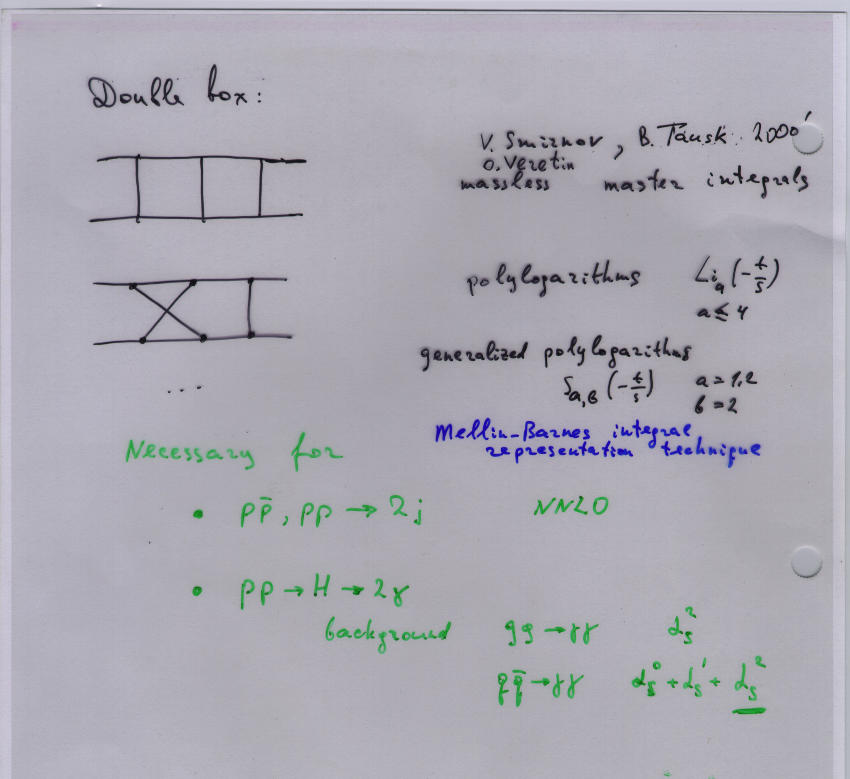 Double box:
V. Smirnov, B. Tausk 2000'
O. Veretin
massless master integrals
polylogarithms Li_a (-t/s)
a ≤ 4
generalized polylogarithms
S_{a,b} (-t/s) a = 1,2
b = 2
...
Mellin-Barnes integral
representation technique
Necessary for
• pp̄, pp → 2j NNLO
• pp → H → 2γ
background gg → γγ α_s^2
qq̄ → γγ α_s^0 + α_s^1 + α_s^2